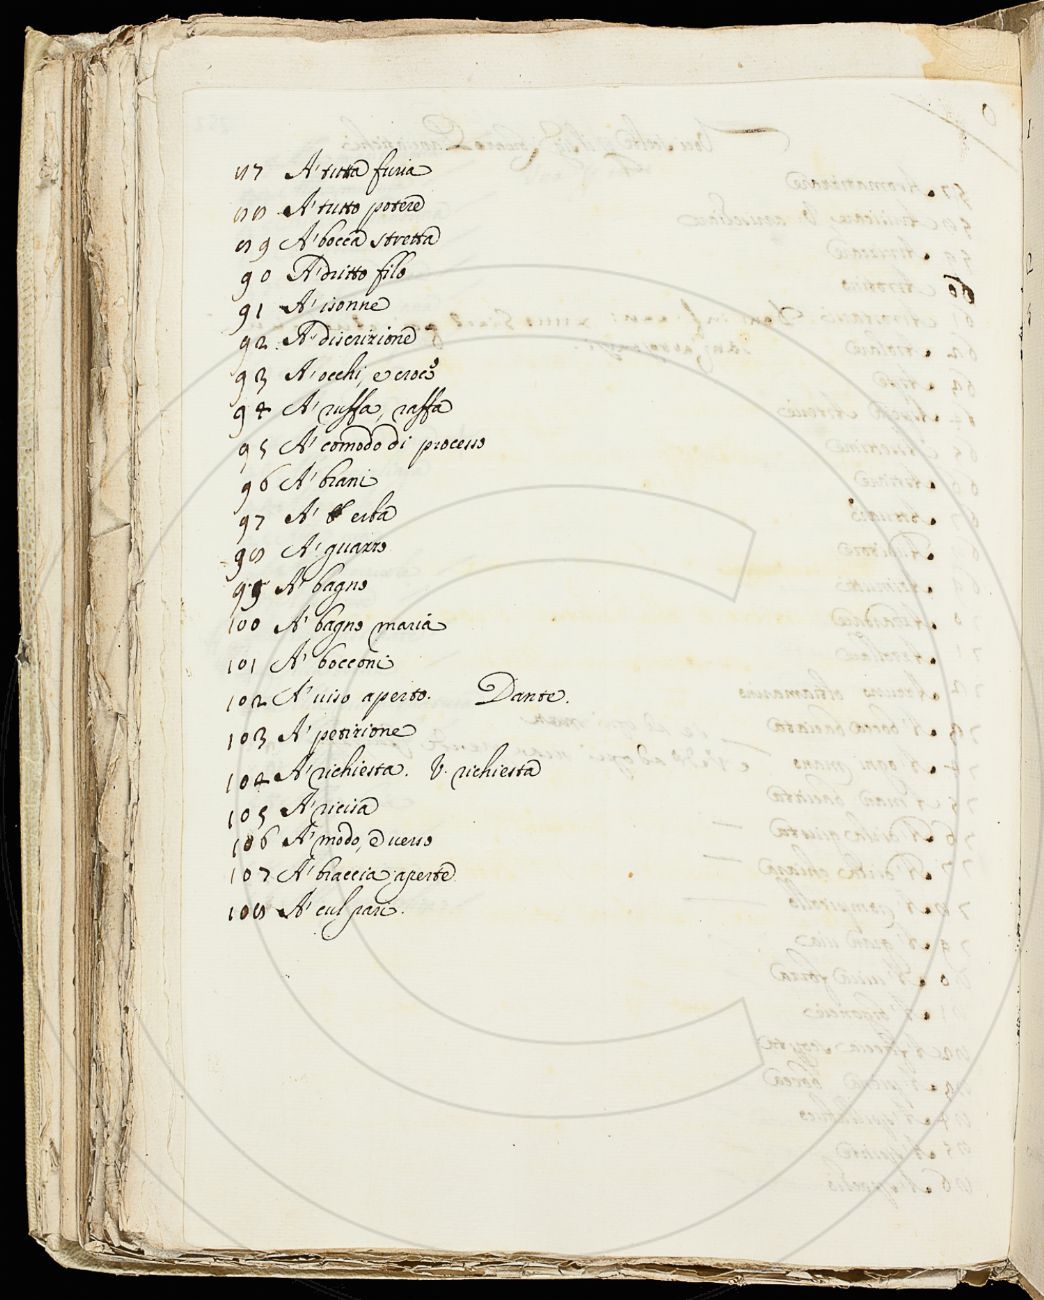 87 A' tutta furia
88 A' tutto potere
89 A' bocca stretta
90 A' dritto filo
91 A' isonne
92 A' discrizione
93 A' occhi, e croce
94 A' ruffa, raffa
95 A' comodo di processo
96 A' brani
97 A' erba
98 A' guazzo
99 A' bagno
100 A' bagno maria
101 A' bocconi
102 A' viso aperto. Dante.
103 A' petizione
104 A' richiesta. V. richiesta
105 A' ricisa
106 A' modo, e verso
107 A' braccia aperte
108 A' cul pari.